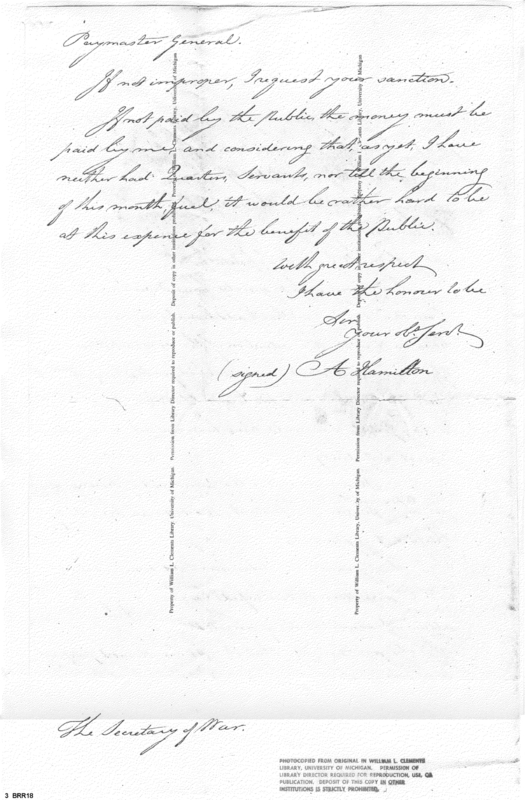 Paymaster General.
If not improper, I request your sanction.
If not paid by the Public, the money must be
paid by me, and considering that, as yet, I have
neither had Quarters, Servants, nor till the beginning
of this month fuel, it would be rather hard to be
at this expence for the benefit of the Public.
With great respect
I have the honour to be
Sir
your Obt. Servt.
(signed) A Hamilton
The Secretary of War.
Property of William L. Clements Library University of Michigan Permission from Library Director required to reproduce or publish. Deposit of copy in other institutions
Property of William L. Clements Library, University of Michigan Permission from Library Director required to reproduce
PHOTOCOPIED FROM ORIGINAL IN WILLIAM L. CLEMENTS
LIBRARY, UNIVERSITY OF MICHIGAN. PERMISSION OF
LIBRARY DIRECTOR REQUIRED FOR REPRODUCTION, USE, OR
PUBLICATION. DEPOSIT OF THIS COPY IN OTHER
INSTITUTIONS IS STRICTLY PROHIBITED.
3 BRR18